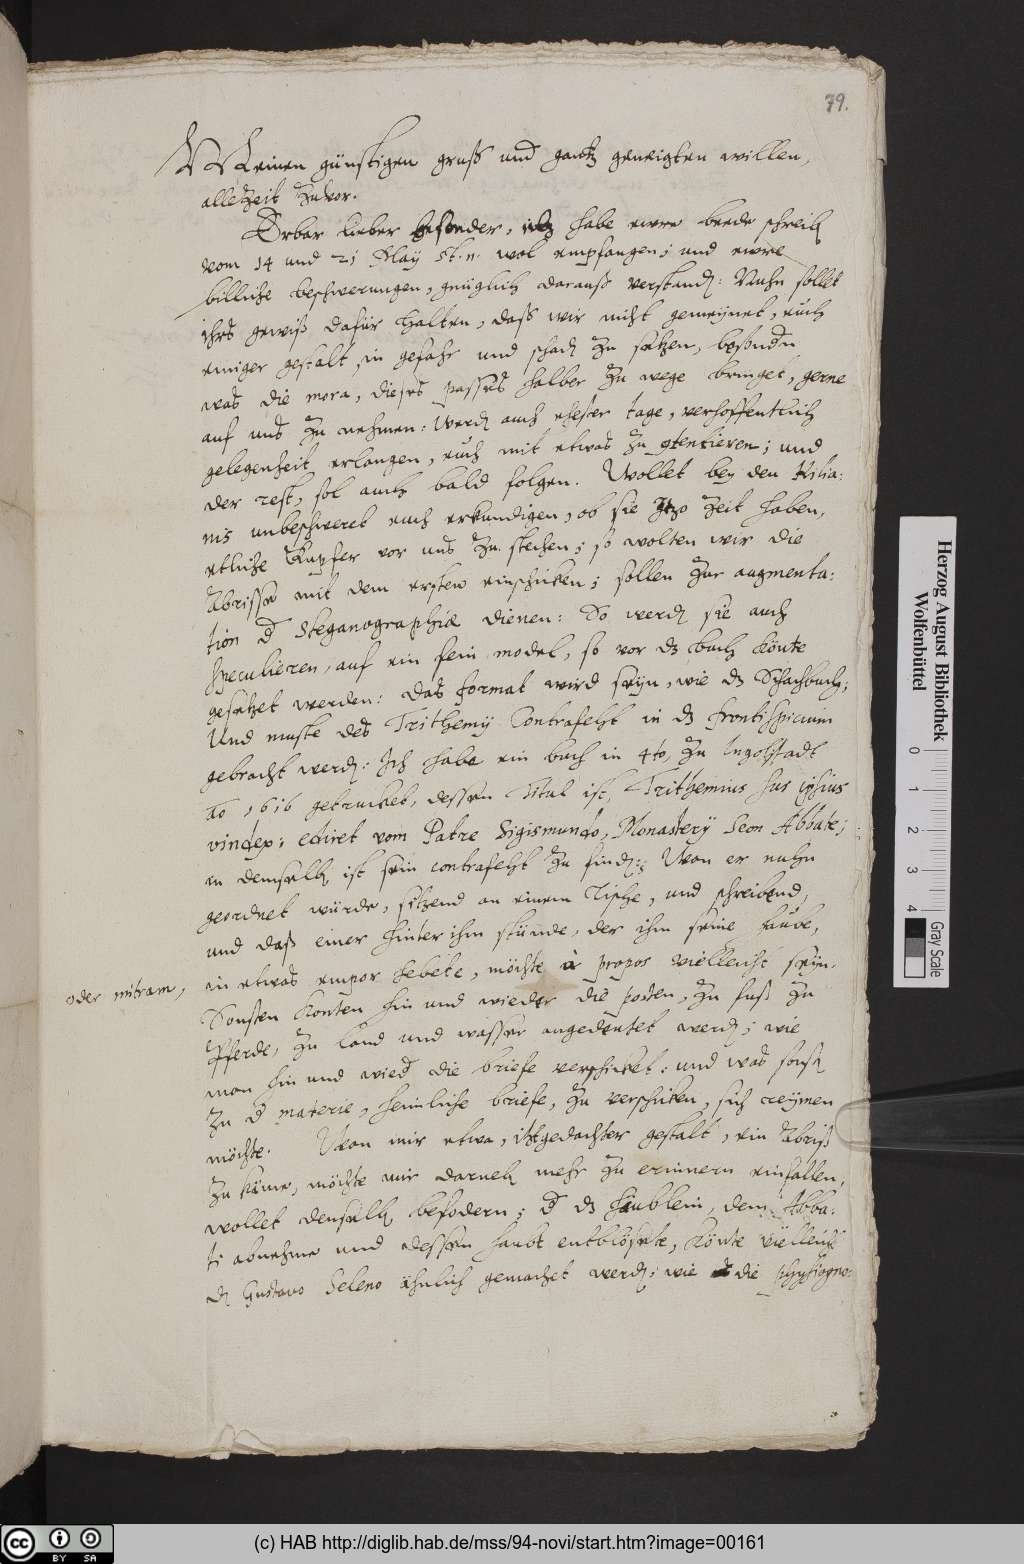 79.
Meinen günstigen gruß und gantz geneigten willen,
allezeit zuvor.
Erbar lieber besonder, ich habe ewre beede schreib
vom 14 und 21 May st. n. wol empfangen; und ewre
billiche beschwerungen, gnüglich darauß verstand: Nuhn sollet
ihrs gewiß dafür halten, daß wir nicht gemeynet, euch
einiger gestalt, in gefahr und schad zu setzen, besondn
was die mora, dieses passes halber zu wege bringet, gerne
auf uns zu nehmen: Werd auch ehester tage, verhoffentlich
gelegenheit erlangen, euch mit etwas zu contentieren; und
der rest, sol auch bald folgen. Wollet bey den Kilia:
nis unbeschweret euch erkundigen, ob sie itzo zeit haben,
etliche Kupfer vor uns zu stechen; so wolten wir die
Abrisse mit dem ersten einschicken; sollen zur augmenta:
tion d Steganographiæ dienen: So werd sie auch
speculieren, auf ein fein model, so vor dz buch könte
gesetzet werden: das format wird seyn, wie dz Schachbuch;
Und muste des Trithemij Contrafeht in dz frontispicium
gebracht werd: Ich habe ein buch in 4to, zu Ingolstadt
Ao 1616 getrucket, dessen Titul ist, Trithemius sui ipsius
vindex; ediret vom Patre Sigismundo, Monastery Seon Abbate;
in demselb ist sein contrafeht zu find: Wan er nuhn
geordnet würde, sitzend an einem Tische, und schreibend,
und daß einer hinter ihm stünde, der ihm seine haube,
oder mitram,
in etwas empor hebete, möchte à propos vielleicht seyn.
Sonsten konten hin und wieder die posten, zu fuß zu
Pferde, zu land und wasser angedeutet werd; wie
man hin und wied die briefe verschicket: und was sonst
zu d materie, heimliche briefe, zu verschicken, sich reymen
möchte. Wan mir etwa, itztgedachter gestalt, ein Abriß
zu käme, möchte mir darneb mehr zu erinnern einfallen,
wollet denselb befodern; d dz häublein, dem Abba:
ti abnehme und dessen haubt entblösete, könte vielleicht
d Gustavo Seleno ähnlich gemachet werd; wie die physiogno:
Herzog August Bibliothek
Wolfenbüttel
0 1 2 3 4
Gray Scale
cc BY SA
(c) HAB http://diglib.hab.de/mss/94-novi/start.htm?image=00161